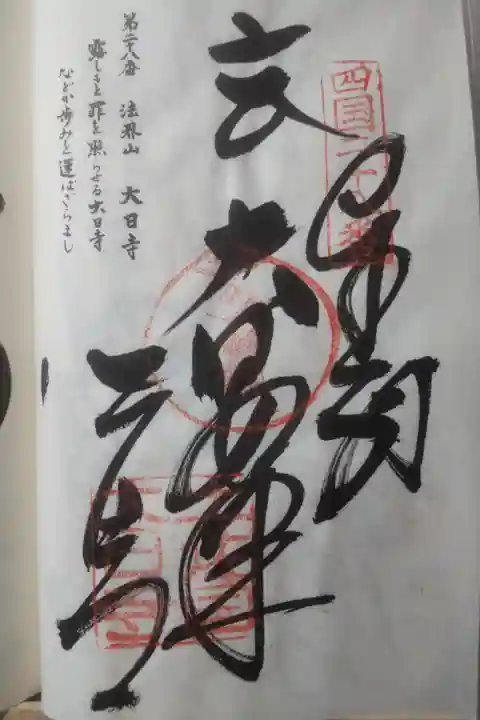 四国二十八番
奉納
大日如来
大日寺
第二十八番 法界山 大日寺
露しもと罪を照らせる大日寺
などか歩みを運ばざらまし